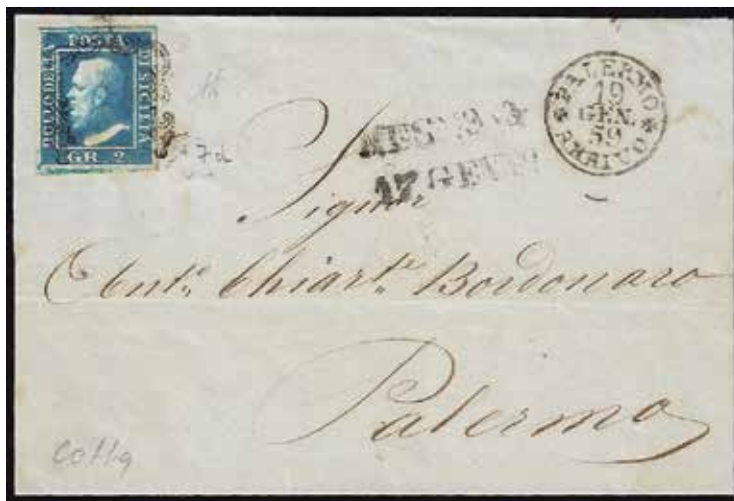 BOLLO DELLA
POSTA
DI SICILIA
GR. 2
PALERMO
19
GEN.
59
ARRIVO
MESSINA
17 GEN
7d
Signor
Chiar.
Bordonaro
Palermo